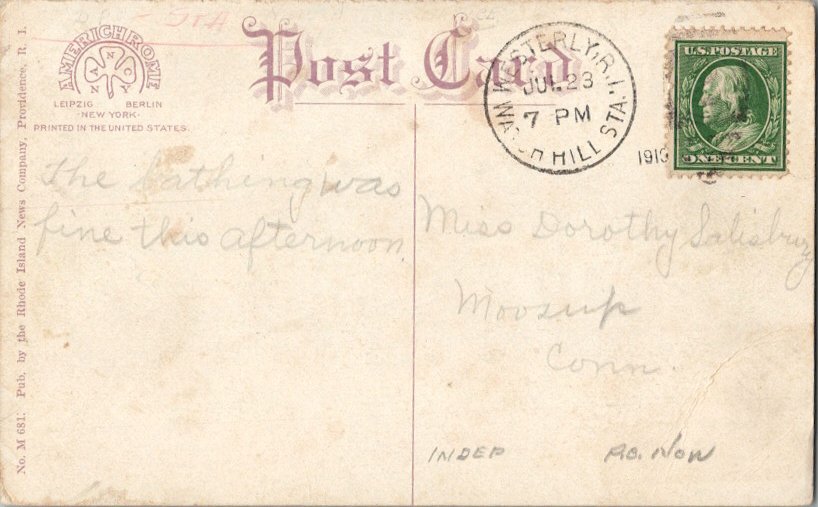 AMERICHROME
A N C Y
LEIPZIG BERLIN
NEW YORK
PRINTED IN THE UNITED STATES.
Post Card
WESTERLY, R.I.
JUL 23
7 PM
HILL STA.
U.S. POSTAGE
ONE CENT
The bathing was
fine this afternoon.
Miss Dorothy Salisbury
Moosup
Conn.
INDEP P.O. NOW
No. M 681. Pub. by the Rhode Island News Company, Providence, R. I.